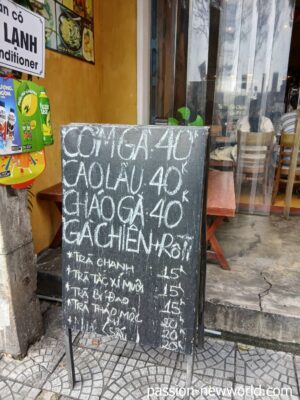 có
LẠNH
conditioner
CƠM GÀ: 40K
CAO LẦU: 40K
CHÁO GÀ: 40K
GÀ CHIÊN + RÔTI
* TRÀ CHANH 15K
* TRÀ TẮC XÍ MUỘI 15K
* TRÀ BÍ ĐAO 15K
* TRÀ THẢO MỘC 20K
SẤU 20K
20K
passion-newworld.com